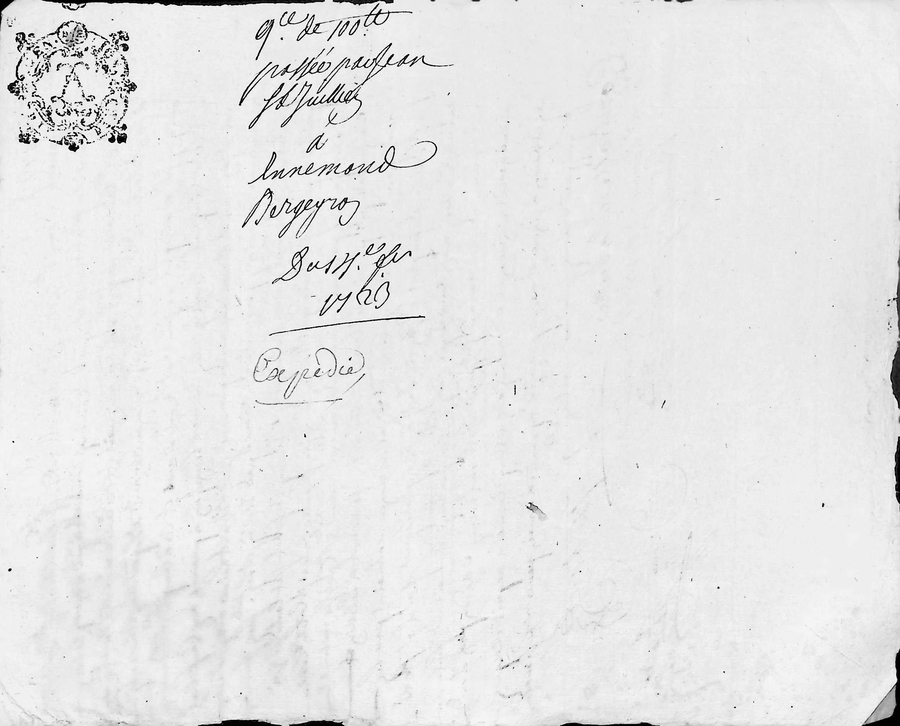 qce. de 100tt
passée par Jean
St Jullien
a
Ennemond
Bergeyron
Du 14e.
1723
Expédié,